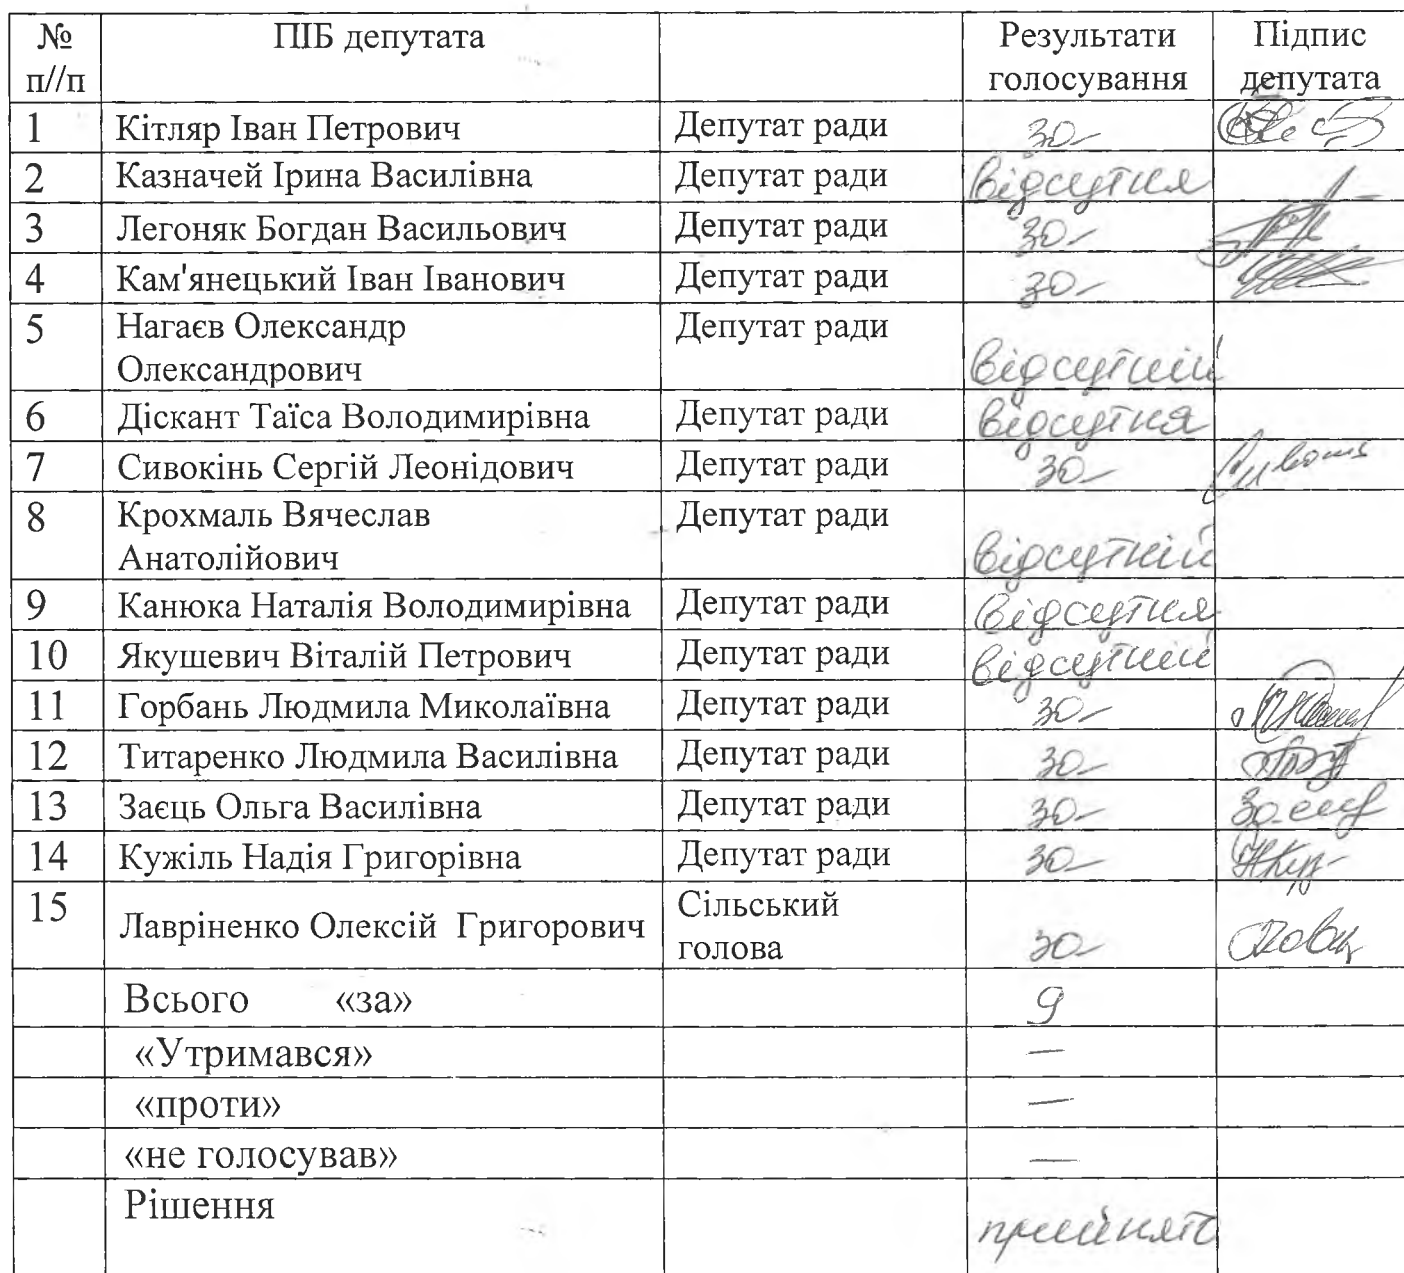 № п//п ПІБ депутата Результати голосування Підпис депутата
1 Кітляр Іван Петрович Депутат ради За
2 Казначей Ірина Василівна Депутат ради Відсутня
3 Легоняк Богдан Васильович Депутат ради За
4 Кам'янецький Іван Іванович Депутат ради За
5 Нагаєв Олександр Депутат ради
Олександрович Відсутній
6 Діскант Таїса Володимирівна Депутат ради Відсутня
7 Сивокінь Сергій Леонідович Депутат ради За
8 Крохмаль Вячеслав Депутат ради
Анатолійович Відсутній
9 Канюка Наталія Володимирівна Депутат ради Відсутня
10 Якушевич Віталій Петрович Депутат ради Відсутній
11 Горбань Людмила Миколаївна Депутат ради За
12 Титаренко Людмила Василівна Депутат ради За
13 Заєць Ольга Василівна Депутат ради За
14 Кужіль Надія Григорівна Депутат ради За
15 Лавріненко Олексій Григорович Сільський голова За
Всього «за» 9
«Утримався» —
«проти» —
«не голосував» —
Рішення прийнято